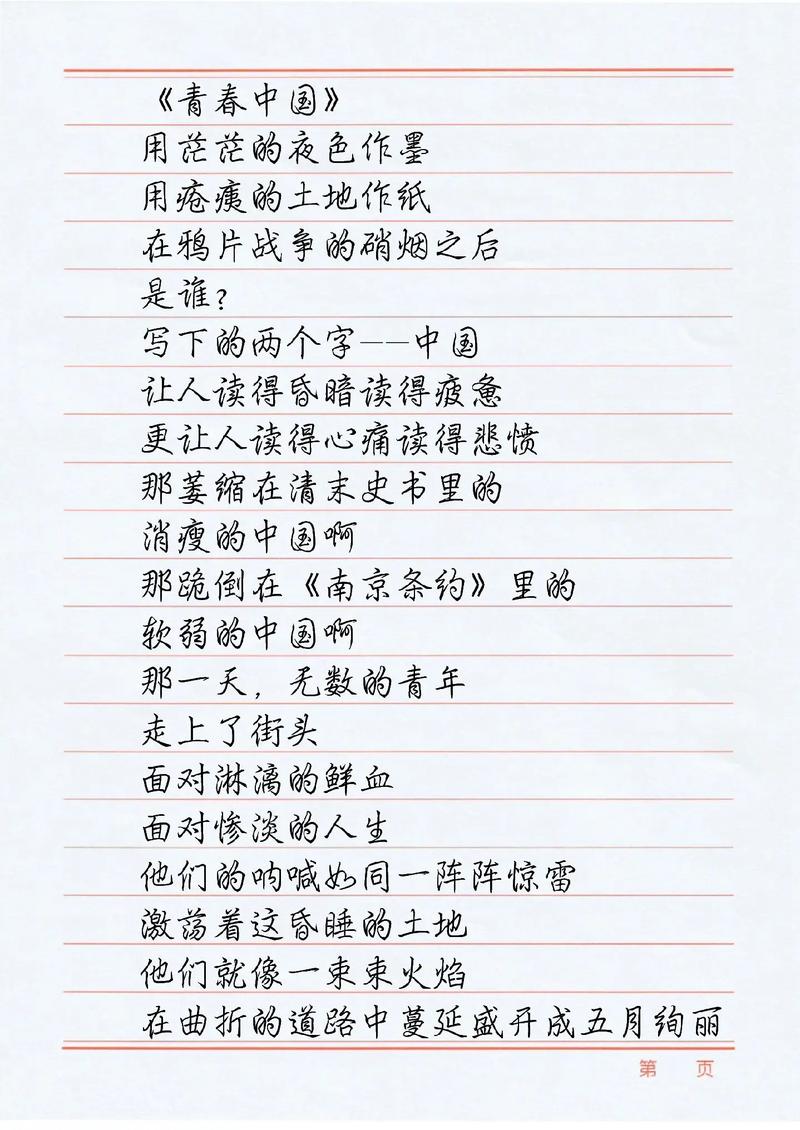 《青春中国》
用茫茫的夜色作墨
用疮痍的土地作纸
在鸦片战争的硝烟之后
是谁？
写下的两个字——中国
让人读得昏暗读得疲惫
更让人读得心痛读得悲愤
那萎缩在清末史书里的
消瘦的中国啊
那跪倒在《南京条约》里的
软弱的中国啊
那一天，无数的青年
走上了街头
面对淋漓的鲜血
面对惨淡的人生
他们的呐喊如同一阵阵惊雷
激荡着这昏睡的土地
他们就像一束束火焰
在曲折的道路中蔓延盛开成五月绚丽
第 页